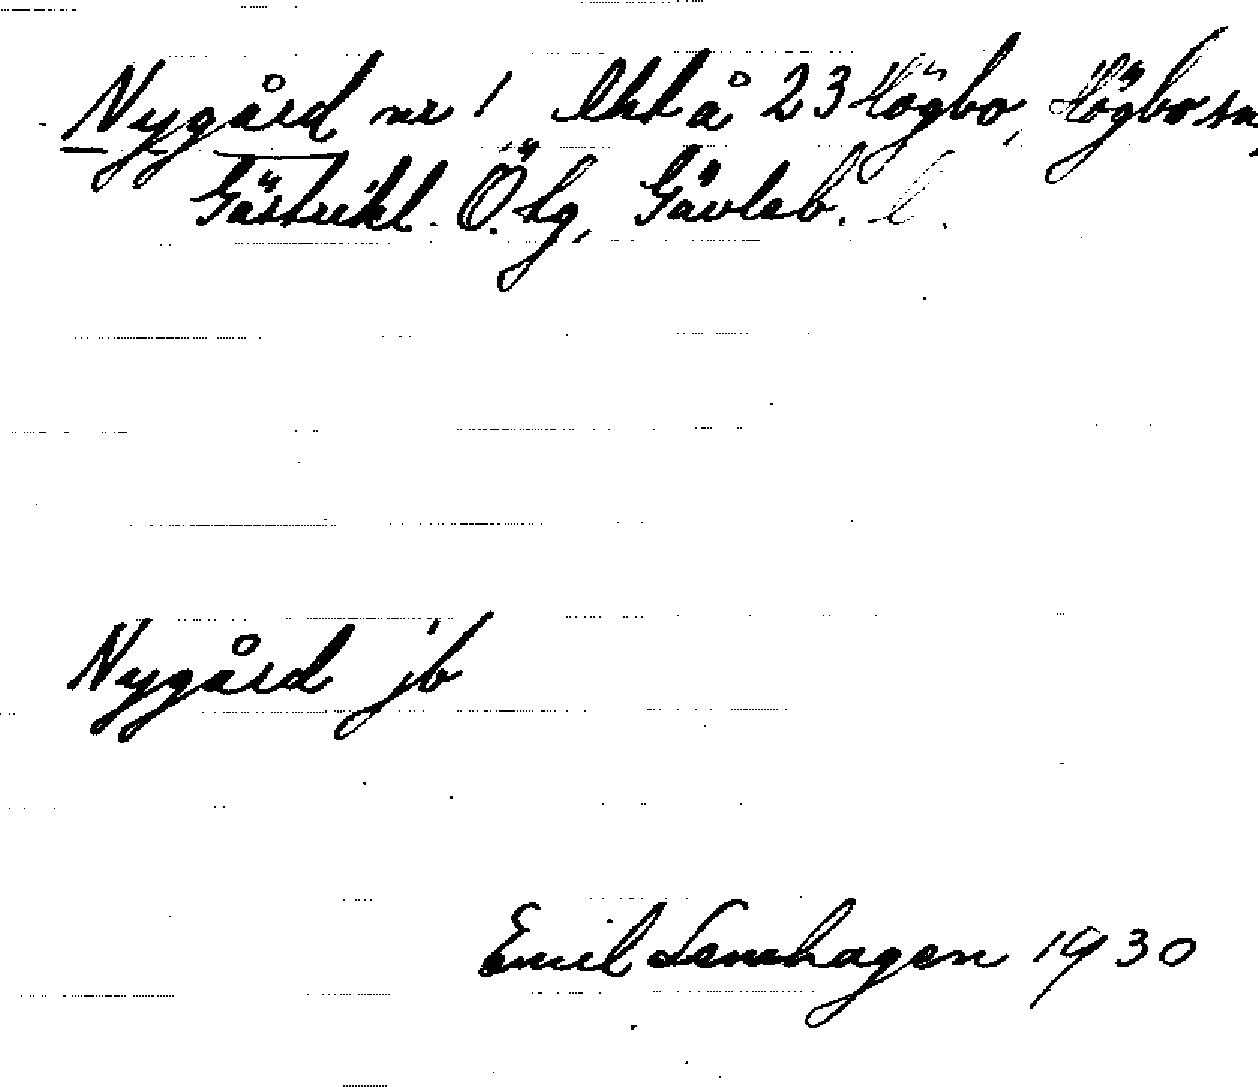 Nygård nr 1 Ekbl å 23 Högbo, Högbo sn,
Gästrikl. Ö. tg, Gävleb. l.
Nygård jb
Emil Lenehagen 1930